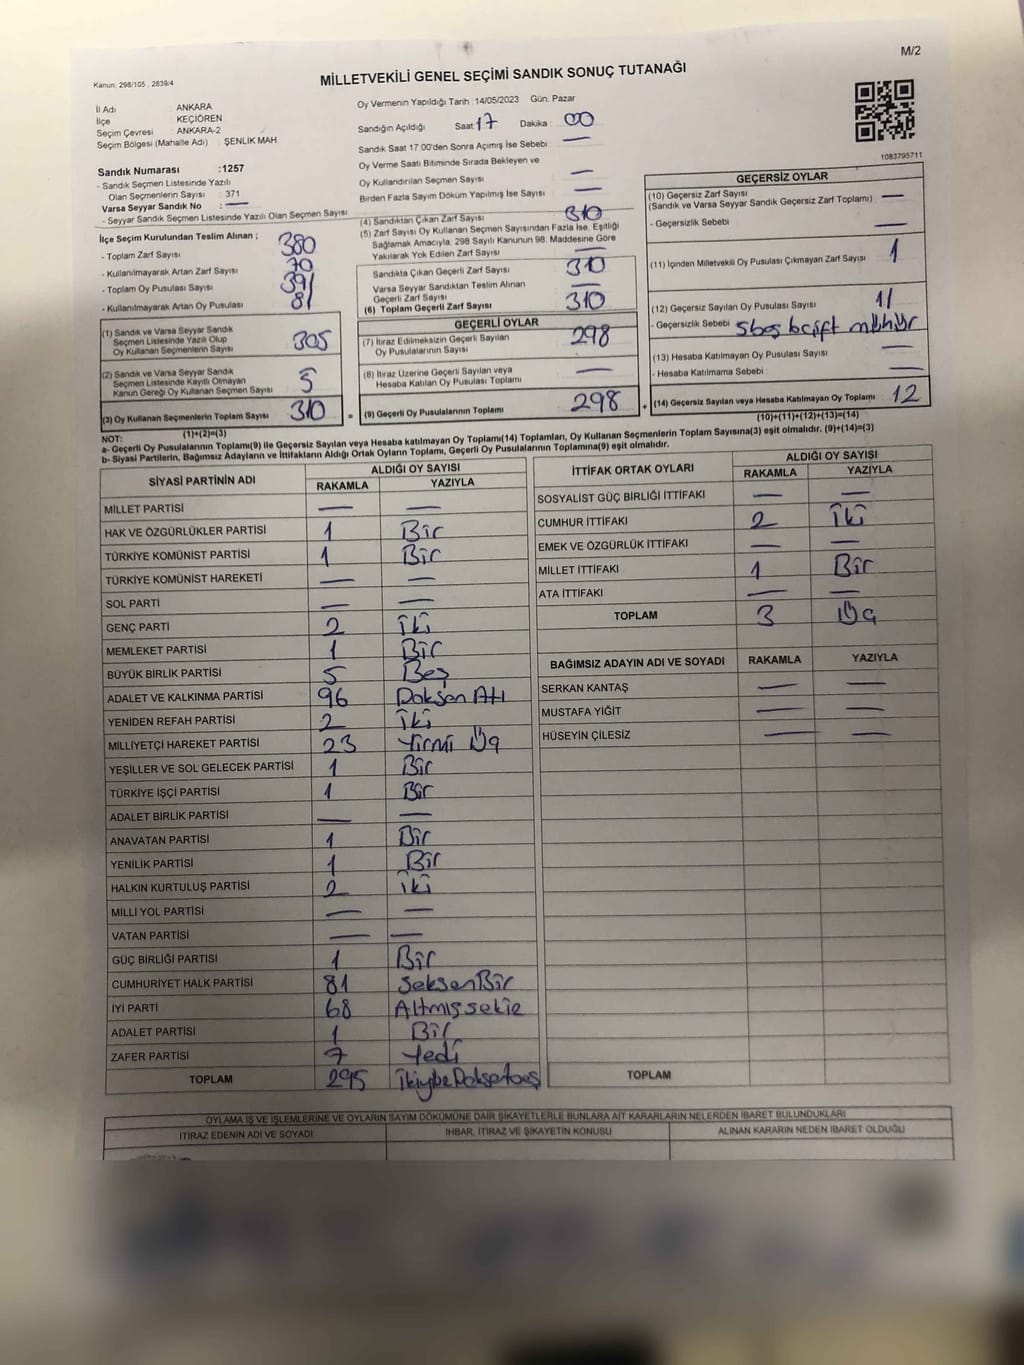 M/2
Kanun: 298/105 , 2839/4
MİLLETVEKİLİ GENEL SEÇİMİ SANDIK SONUÇ TUTANAĞI
İl Adı : ANKARA
İlçe : KEÇİÖREN
Seçim Çevresi : ANKARA-2
Seçim Bölgesi (Mahalle Adı) : ŞENLİK MAH
Sandık Numarası :1257
- Sandık Seçmen Listesinde Yazılı
Olan Seçmenlerin Sayısı : 371
Varsa Seyyar Sandık No : —
- Seyyar Sandık Seçmen Listesinde Yazılı Olan Seçmen Sayısı
İlçe Seçim Kurulundan Teslim Alınan ;
- Toplam Zarf Sayısı 380
- Kullanılmayarak Artan Zarf Sayısı 70
- Toplam Oy Pusulası Sayısı 391
- Kullanılmayarak Artan Oy Pusulası 81
(1) Sandık ve Varsa Seyyar Sandık
Seçmen Listesinde Yazılı Olup
Oy Kullanan Seçmenlerin Sayısı 305
(2) Sandık ve Varsa Seyyar Sandık
Seçmen Listesinde Kayıtlı Olmayan
Kanun Gereği Oy Kullanan Seçmen Sayısı 5
(3) Oy Kullanan Seçmenlerin Toplam Sayısı 310 =
(1)+(2)=(3)
Oy Vermenin Yapıldığı Tarih : 14/05/2023 Gün: Pazar
Sandığın Açıldığı Saat : 17 Dakika : 00
Sandık Saat 17:00'den Sonra Açımış İse Sebebi : —
Oy Verme Saati Bitiminde Sırada Bekleyen ve
Oy Kullandırılan Seçmen Sayısı —
Birden Fazla Sayım Döküm Yapılmış İse Sayısı —
(4) Sandıktan Çıkan Zarf Sayısı 310
(5) Zarf Sayısı Oy Kullanan Seçmen Sayısından Fazla İse, Eşitliği
Sağlamak Amacıyla, 298 Sayılı Kanunun 98. Maddesine Göre
Yakılarak Yok Edilen Zarf Sayısı —
Sandıkta Çıkan Geçerli Zarf Sayısı 310
Varsa Seyyar Sandıktan Teslim Alınan
Geçerli Zarf Sayısı —
(6) Toplam Geçerli Zarf Sayısı 310
GEÇERLİ OYLAR
(7) İtiraz Edilmeksizin Geçerli Sayılan
Oy Pusulalarının Sayısı 298
(8) İtiraz Üzerine Geçerli Sayılan veya
Hesaba Katılan Oy Pusulası Toplamı —
(9) Geçerli Oy Pusulalarının Toplamı 298 +
1083795711
GEÇERSİZ OYLAR
(10) Geçersiz Zarf Sayısı —
(Sandık ve Varsa Seyyar Sandık Geçersiz Zarf Toplamı)
- Geçersizlik Sebebi : —
(11) İçinden Milletvekili Oy Pusulası Çıkmayan Zarf Sayısı 1
(12) Geçersiz Sayılan Oy Pusulası Sayısı 11
- Geçersizlik Sebebi : 5boş 6çift mühür
(13) Hesaba Katılmayan Oy Pusulası Sayısı —
- Hesaba Katılmama Sebebi : —
(14) Geçersiz Sayılan veya Hesaba Katılmayan Oy Toplamı 12
(10)+(11)+(12)+(13)=(14)
NOT:
a- Geçerli Oy Pusulalarının Toplamı(9) ile Geçersiz Sayılan veya Hesaba katılmayan Oy Toplamı(14) Toplamları, Oy Kullanan Seçmenlerin Toplam Sayısına(3) eşit olmalıdır. (9)+(14)=(3)
b- Siyasi Partilerin, Bağımsız Adayların ve İttifakların Aldığı Ortak Oyların Toplamı, Geçerli Oy Pusulalarının Toplamına(9) eşit olmalıdır.
SİYASİ PARTİNİN ADI ALDIĞI OY SAYISI
RAKAMLA YAZIYLA
MİLLET PARTİSİ — —
HAK VE ÖZGÜRLÜKLER PARTİSİ 1 Bir
TÜRKİYE KOMÜNİST PARTİSİ 1 Bir
TÜRKİYE KOMÜNİST HAREKETİ — —
SOL PARTİ — —
GENÇ PARTİ 2 İki
MEMLEKET PARTİSİ 1 Bir
BÜYÜK BİRLİK PARTİSİ 5 Beş
ADALET VE KALKINMA PARTİSİ 96 Doksan Altı
YENİDEN REFAH PARTİSİ 2 İki
MİLLİYETÇİ HAREKET PARTİSİ 23 Yirmi Üç
YEŞİLLER VE SOL GELECEK PARTİSİ 1 Bir
TÜRKİYE İŞÇİ PARTİSİ 1 Bir
ADALET BİRLİK PARTİSİ — —
ANAVATAN PARTİSİ 1 Bir
YENİLİK PARTİSİ 1 Bir
HALKIN KURTULUŞ PARTİSİ 2 İki
MİLLİ YOL PARTİSİ — —
VATAN PARTİSİ — —
GÜÇ BİRLİĞİ PARTİSİ 1 Bir
CUMHURİYET HALK PARTİSİ 81 SeksenBir
İYİ PARTİ 68 Altmışsekiz
ADALET PARTİSİ 1 Bir
ZAFER PARTİSİ 7 Yedi
TOPLAM 295
İTTİFAK ORTAK OYLARI ALDIĞI OY SAYISI
RAKAMLA YAZIYLA
SOSYALİST GÜÇ BİRLİĞİ İTTİFAKI — —
CUMHUR İTTİFAKI 2 İki
EMEK VE ÖZGÜRLÜK İTTİFAKI — —
MİLLET İTTİFAKI 1 Bir
ATA İTTİFAKI — —
TOPLAM 3 Üç
BAĞIMSIZ ADAYIN ADI VE SOYADI RAKAMLA YAZIYLA
SERKAN KANTAŞ — —
MUSTAFA YİĞİT — —
HÜSEYİN ÇİLESİZ — —
TOPLAM
OYLAMA İŞ VE İŞLEMLERİNE VE OYLARIN SAYIM DÖKÜMÜNE DAİR ŞİKAYETLERLE BUNLARA AİT KARARLARIN NELERDEN İBARET BULUNDUKLARI
İTİRAZ EDENİN ADI VE SOYADI İHBAR, İTİRAZ VE ŞİKAYETİN KONUSU ALINAN KARARIN NEDEN İBARET OLDUĞU